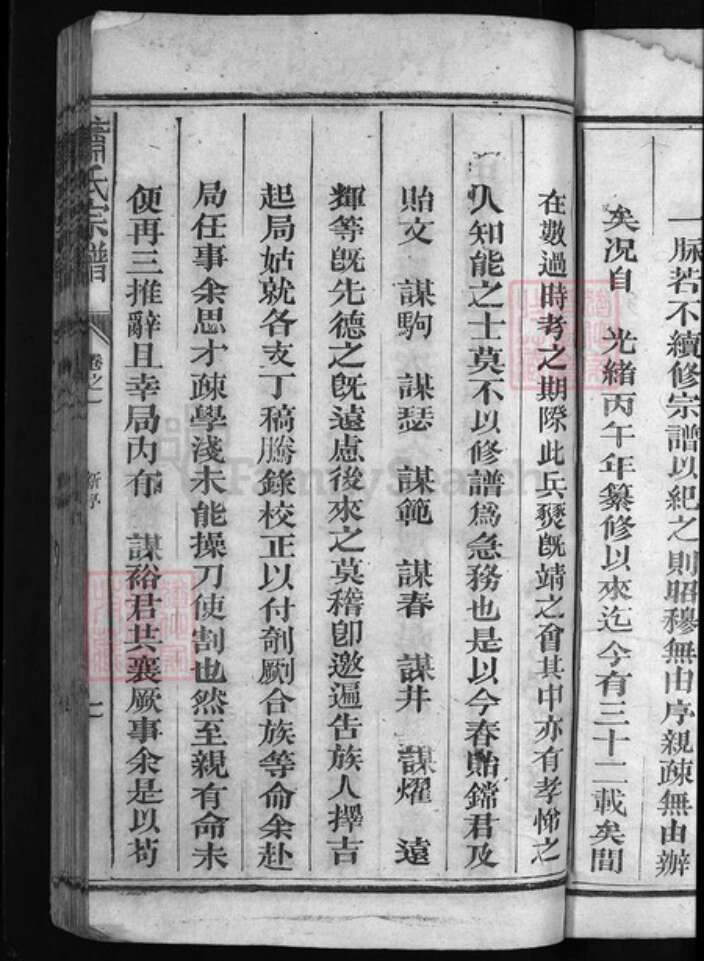 一脈若不續修宗譜以紀之則昭穆無由序親疎無由辦
矣况自 光緒丙午年纂修以來迄今有三十二載矣間
在數過時考之期際此兵燹旣靖之會其中亦有孝悌之
人知能之士莫不以修譜爲急務也是以今春貽鐺君及
貽文 謀駒 謀瑟 謀範 謀春 謀井 謀燿 遠
輝等旣先德之旣遠慮後來之莫稽卽邀遍告族人擇吉
起局姑就各支丁稿謄錄校正以付剞劂合族等命余赴
局任事余思才疎學淺未能操刀使割也然至親有命未
便再三推辭且幸局內有 謀裕君共襄厥事余是以苟
蕭氏宗譜
卷之一
新序
FamilySearch